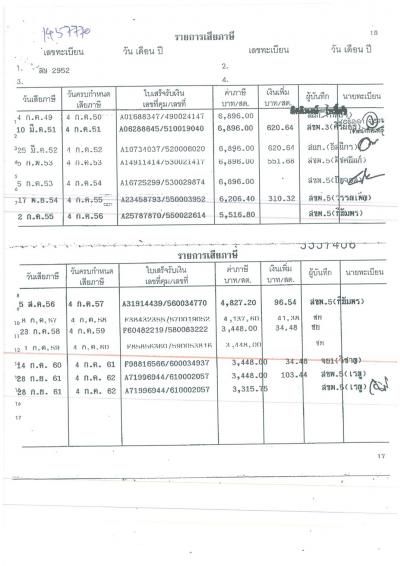 1457770
18
รายการเสียภาษี
เลขทะเบียน วัน เดือน ปี เลขทะเบียน วัน เดือน ปี
1. สษ 2952 2.
3. 4.
วันเสียภาษี วันครบกำหนดเสียภาษี ใบเสร็จรับเงิน เลขที่คุม/เลขที่ ค่าภาษี บาท/สต. เงินเพิ่ม บาท/สต. ผู้บันทึก นายทะเบียน
4 ก.ค.49 4 ก.ค.50 A01688347/490024147 6,896.00
10 มี.ค.51 4 ก.ค.51 A06288845/510019040 6,896.00 620.64
25 มี.ค.52 4 ก.ค.52 A10734037/520006020 6,896.00 620.64
5 ก.พ.53 4 ก.ค.53 A14911414/530021417 6,896.00 551.68
5 ก.ค.53 4 ก.ค.54 A16725299/530029874 6,896.00
17 พ.ย.54 4 ก.ค.55 A23458793/550003952 6,206.40 310.32
2 ก.ค.55 4 ก.ค.56 A25787870/550022614 5,516.80 สชพ.5(ทิฆัมพร)
รายการเสียภาษี
วันเสียภาษี วันครบกำหนดเสียภาษี ใบเสร็จรับเงิน เลขที่คุม/เลขที่ ค่าภาษี บาท/สต. เงินเพิ่ม บาท/สต. ผู้บันทึก นายทะเบียน
5 ส.ค.56 4 ก.ค.57 A31914439/560034770 4,827.20 96.54 สชพ.5(ทิฆัมพร)
8 ก.ค.57 4 ก.ค.58 4,137.60 41.38
23 ก.ค.58 4 ก.ค.59 F60482219/580083222 3,448.00 34.48
1 ก.ค.59 4 ก.ค.60 3,448.00
14 ก.ค. 60 4 ก.ค. 61 F98816566/600034937 3,448.00 34.48
28 ก.ย. 61 4 ก.ค. 62 A71996944/610002057 3,448.00 103.44 สชพ.5(เรณู)
28 ก.ย. 61 4 ก.ค. 62 A71996944/610002057 3,315.75 สชพ.5(เรณู)
16
17
17